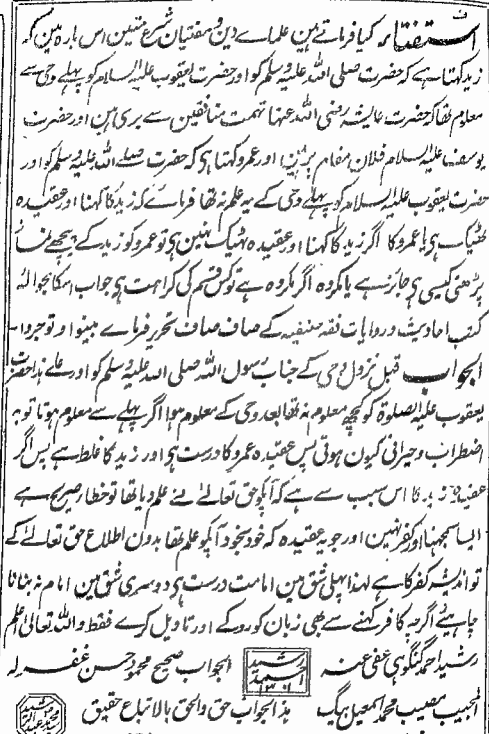 استفتاء کیا فرماتے ہین علماے دین و مفتیان شرع متین اس بارہ مین کہ
زید کہتا ہے کہ حضرت صلی اللہ علیہ وسلم کو اور حضرت یعقوب علیہ السلام کو پہلے وحی سے
معلوم تھا کہ حضرت عایشہ رضی اللہ عنہا تہمت منافقین سے بری ہین اور حضرت
یوسف علیہ السلام فلان مقام پر ہین اور عمرو کہتا ہی کہ حضرت صلے اللہ علیہ وسلم کو اور
حضرت یعقوب علیہ السلام کو پہلے وحی کے یہ علم نہ تھا فرمائے کہ زید کا کہنا اور عقیدہ
ٹھیک ہی یا عمرو کا اگر زید کا کہنا اور عقیدہ ٹھیک نہین ہی تو عمرو کو زید کے پیچھے نماز
پڑھنی کیسی ہی جائز ہے یا مکروہ اگر مکروہ ہے تو کس قسم کی کراہت ہی جواب اسکا بحوالۂ
کتب احادیث و روایات فقہ حنفیہ کے صاف صاف تحریر فرمائے بینوا و توجروا۔
الجواب قبل نزول وحی کے جناب رسول اللہ صلی اللہ علیہ وسلم کو اور علے ہذا حضرت
یعقوب علیہ الصلوۃ کو کچھ معلوم نہ تھا بعد وحی کے معلوم ہوا اگر پہلے سے معلوم ہوتا تو یہ
اضطراب و حیرانی کیون ہوتی پس عقیدہ عمرو کا درست ہی اور زید کا غلط ہے پس اگر
عقیدہ زید کا اس سبب سے ہے کہ آپکو حق تعالے نے علم دیا تھا تو خطا صریح ہے
ایسا سمجھنا اور کفر نہین اور جو یہ عقیدہ کہ خود بخود آپکو علم تھا بدون اطلاع حق تعالے کے
تو اندیشہ کفر کا ہے لہذا پہلی شق مین امامت درست ہی دوسری شق مین امام نہ بنانا
چاہیے اگرچہ کافر کہنے سے بھی زبان کو روکے اور تاویل کرے فقط واللہ تعالی اعلم
رشید احمد گنگوہی عفی عنہ رشید احمد ۱۳۰۱ الجواب صحیح محمود حسن غفر لہ
المجیب مصیب محمد اسمعیل بیگ ہذا الجواب حق والحق بالاتباع حقیق